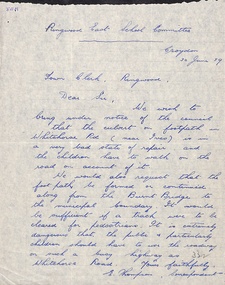 Ringwood East School Committee
Croydon
20 June 39
Town Clerk, Ringwood.
Dear Sir,
We wish to
bring under notice of the council
that the culvert on footpath in
Whitehorse Rd (near Ives) is in
a very bad state of repair and
the children have to walk on the
road on account of it.
We would also request that the
foot path be formed or continued
along from the Burnt Bridge to
the municipal boundary. It would
be sufficient if a track were to be
cleared for pedestrians. It is extremely
dangerous that the public & particularly
children should have to use the roadway
on such a busy highway as
Whitehorse Road. Yours faithfully,
Correspondent